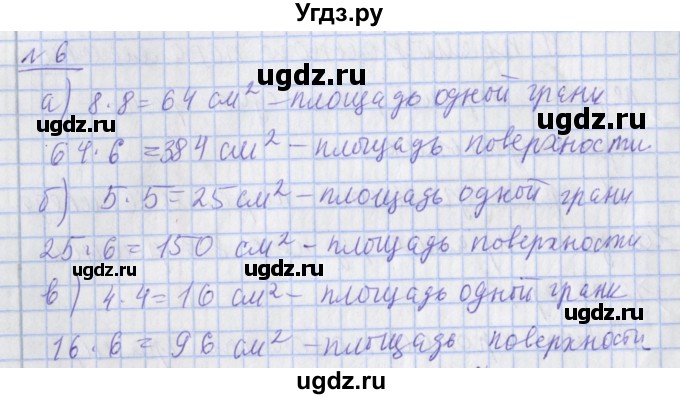 Угдз.ру
№ 6
ugdz.ru ugdz.ru
а) 8·8=64 см² – площадь одной грани
64·6=384 см² – площадь поверхности
ugdz.ru ugdz.ru
б) 5·5=25 см² – площадь одной грани
ugdz.ru ugdz.ru
25·6=150 см² – площадь поверхности
ugdz.ru ugdz.ru
в) 4·4=16 см² – площадь одной грани
ugdz.ru
16·6=96 см² – площадь поверхности
ugdz.ru